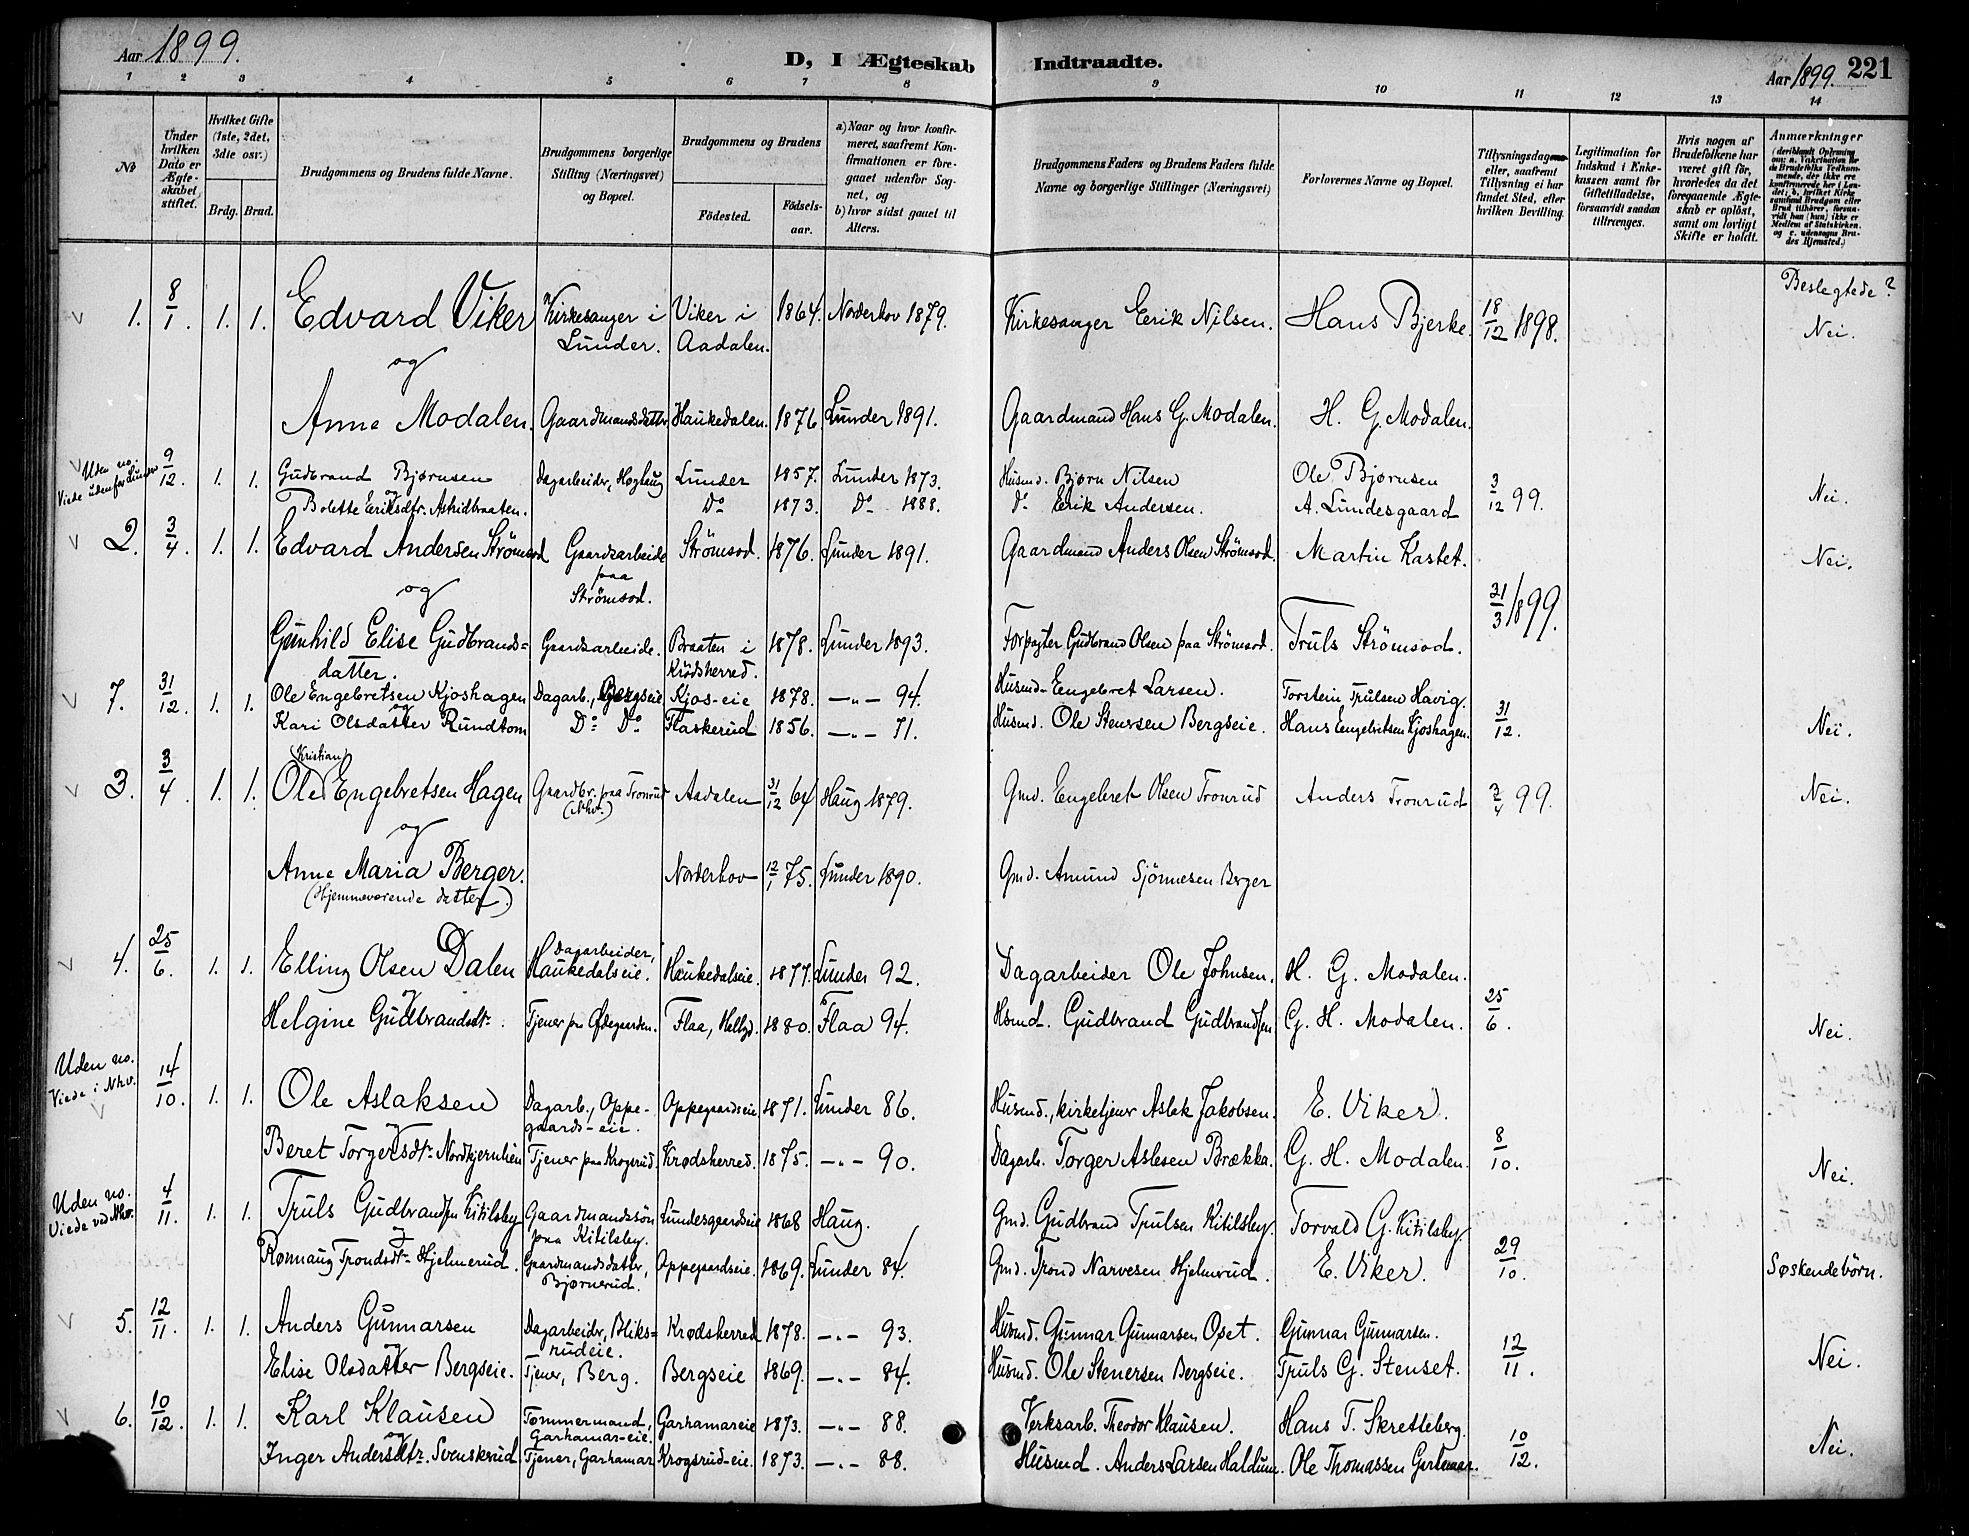 Aar 1899.
D, I Ægteskab Indtraadte.
Aar 1899. 221
1 2 3 4 5 6 7 8 9 10 11 12 13 14
No
Under hvilken Dato er Ægteskabet stiftet.
Hvilket Gifte (1ste, 2det, 3die osv.)
Brdg. Brud.
Brudgommens og Brudens fulde Navne.
Brudgommens borgerlige Stilling (Næringsvei) og Bopæl.
Brudgommens og Brudens
Födested. Födsels-aar.
a) Naar og hvor konfirmeret, saafremt Konfirmationen er foregaaet udenfor Sognet, og
b) hvor sidst gaaet til Alters.
Brudgommens Faders og Brudens Faders fulde Navne og borgerlige Stillinger (Næringsvei)
Forlovernes Navne og Bopæl.
Tillysningsdagene eller, saafremt Tillysning ei har fundet Sted, efter hvilken Bevilling.
Legitimation for Indskud i Enkekassen samt for Giftetilladelse, forsaavidt saadan tiltrænges.
Hvis nogen af Brudefolkene har været gift før, hvorledes da det foregaaende Ægteskab er opløst, samt om lovligt Skifte er holdt.
Anmærkninger
Beslegtede?
1. 8/1. 1. 1. Edvard Viker Kirkesanger i Lunder. Viker i Aadalen. 1864. Norderhov 1879. Kirkesanger Eerik Nilsen. Hans Bjerke. 18/12 1898. Nei.
og
Anne Modalen. Gaardmandsdatter Haukedalen. 1876. Lunder 1891. Gaardmand Hans G. Modalen. H. G. Modalen.
Uden no. Viede udenfor Lunder 9/12. 1. 1. Gudbrand Bjørnsen Dagarbeider, Hoglaug Lunder 1857. Lunder 1873. Husmd. Bjørn Nilsen Ole Bjørnsen 3/12 99. Nei.
og
Bolette Eriksdtr. Astridbraaten. Do 1873. Do 1888. Do Erik Andersen. A. Lundesgaard
2. 3/4. 1. 1. Edvard Andersen Strömsod Gaardsarbeide paa Strömsod. Strömsod. 1876. Lunder 1891. Gaardmand Anders Olsen Strömsod. Martin Kastet. 21/3 1899. Nei.
og
Gunhild Elise Gudbrandsdatter. Gaardsarbeide. Braaten i Krödsherred. 1878. Lunder 1893. Forpagter Gudbrand Olsen paa Strömsod. Truls Strömsod.
7. 31/12. 1. 1. Ole Engebretsen Kjoshagen Dagarb., Bergseie Kjos-eie 1878. —"— 94. Husmd. Eengebret Larsen. Torstein Trulsen Havig. 31/12. Nei.
og
Kari Olsdatter Rundtom Do Do Flaskerud 1856. —"— 71. Husmd. Ole Stenersen Bergseie. Hans Eengebretsen Kjoshagen.
3. 3/4. 1. 1. Ole Kristian Engebretsen Hagen Gaardbr. paa Tronrud (Nhv.) Aadalen 31/12 64 Haug 1879. Gmd. Engebret Olsen Tronrud Anders Tronrud 3/4 99. Nei.
og
Anne Maria Berger. (Hjemmeværende datter) Norderhov 12/1 75. Lunder 1890. Gmd. Amund Sjönnesen Berger
4. 25/6. 1. 1. Elling Olsen Dalen Dagarbeider, Haukedalseie. Haukedalseie. 1877. Lunder 92. Dagarbeider Ole Johnsen. H. G. Modalen. 25/6. Nei.
og
Helgine Gudbrandsdtr. Tjener paa Ødegaarden. Flaa, Hallgd. 1880. Flaa 94. Hsmd. Gudbrand Gudbrandsen G. H. Modalen.
Uden no. Viede i Nhv. 14/10. 1. 1. Ole Aslaksen Dagarb., Oppegaards-eie. Oppegaardseie 1871. Lunder 86. Husmd., kirketjener Aslak Jakobsen. E. Viker. 8/10. Nei.
og
Beret Torgersdtr. Nordkjernlien Tjener paa Krogsrud. Krødsherred. 1875. —"— 90. Dagarb. Torger Aslesen Brækka. G. H. Modalen.
Uden no. Viede ved Nhv. 4/11. 1. 1. Truls Gudbrandsen Kitilsby Gaardmandssön paa Kitilsby. Lundesgaardseie 1868 Haug. Gmd. Gudbrand Trulsen Kitilsby. Torvald G. Kitilsby. 29/10. Søskendebörn.
og
Rønnaug Trondsdtr. Hjelmerud. Gaardmandsdatter, Bjørnerud. Oppegaardseie. 1869. Lunder 84. Gmd. Trond Narvesen Hjelmerud. E. Viker.
5. 12/11. 1. 1. Anders Gunnarsen Dagarbeider, Bliksrudeie. Krødsherred 1878. —"— 93. Husmd. Gunnar Gunnarsen Oset. Gunnar Gunnarsen. 12/11. Nei.
og
Elise Olsdatter Bergseie. Tjener, Berg. Bergseie 1869. —"— 84. Husmd. Ole Stenersen Bergseie. Truls G. Stenset.
6. 10/12. 1. 1. Karl Klausen Tømmermand, Garhamar-eie. Garhamareie 1873. —"— 88. Verksarb. Theodor Klausen. Hans T. Skretteberg. 10/12. Nei.
og
Inger Andersdtr. Svenskerud. Tjener, Garhamar Krogsrud-eie. 1873. —"— 88. Husmd. Anders Larsen Haldum. Ole Thomassen Garhamar.